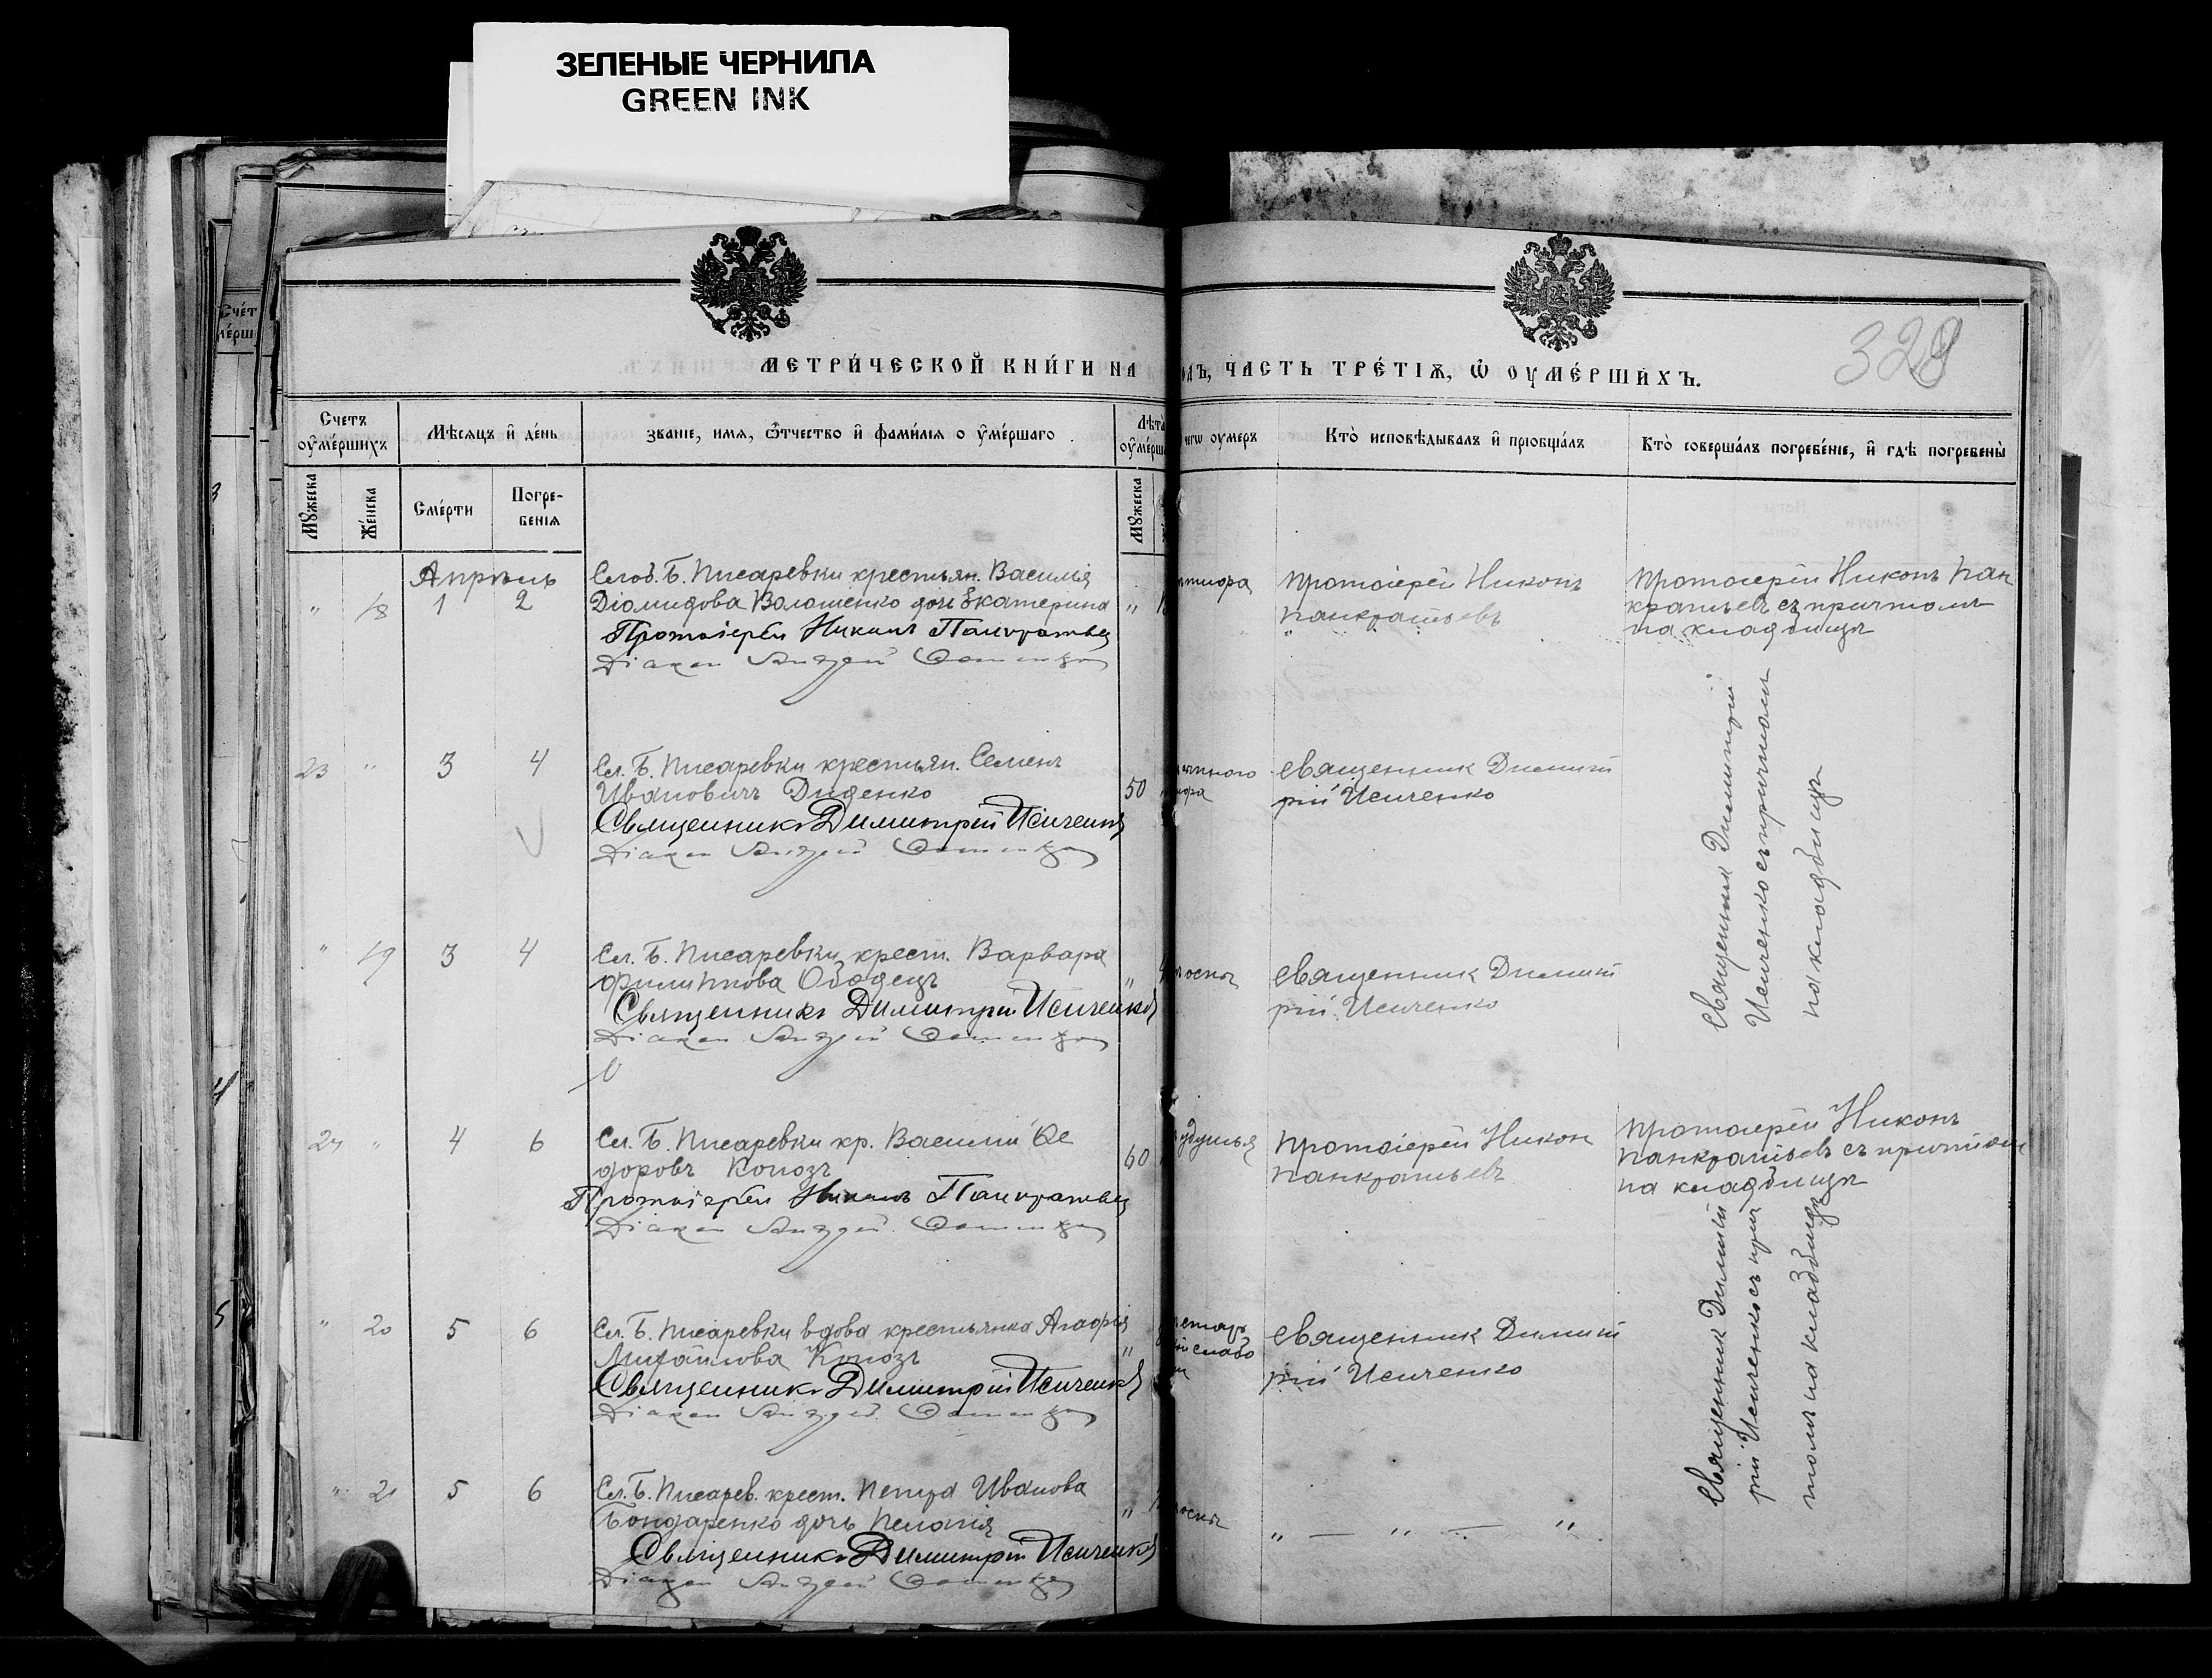 ЗЕЛЕНЫЕ ЧЕРНИЛА
GREEN INK
МЕТРИ́ЧЕСКОЙ КНИ́ГИ НА
ОДЪ, ЧАСТЬ ТРЕ́ТІѦ, Ѡ ОУМЕ́РШИХЪ.
328
Счетъ оуме́ршихъ
Мѣсяцъ и де́нь
званіе, имя, ѿтчество и фами́лія оуме́ршаго
Лѣта
чегѡ оумеръ
Кто̀ исповѣдывалъ и пріобща́лъ
Кто̀ соверша́лъ погребе́ніе, и гдѣ погребены̀
Мужеска
Женска
Сме́рти
Погре-
бенія
Мужеска
Апрѣль
" 18 1 2
Слоб. Б. Писаревки крестьян. Василія
Діомидова Волошенко дочь Екатерина
"
Протоіерей Никонъ Панкратьев
Діакон Андрей
Протоіерей Никонъ
Панкратьевъ
Протоіерей Никонъ Пан
кратьевъ съ причтомъ
на кладбищѣ
23 " 3 4
Сл. Б. Писаревки крестьян. Семенъ
Ивановичъ Диденко
50
Священникъ Димитрій Исиченко
Діакон Андрей
священник Димит
рій Исиченко
Священник Димитрій
Исиченко съ причтомъ
на кладбищѣ
" 19 3 4
Сл. Б. Писаревки, крест. Варвара
Филиппова Ободецъ
"
Священникъ Димитрій Исиченко
Діакон Андрей
оспы
священник Димит
рій Исиченко
24 " 4 6
Сл. Б. Писаревки кр. Василій Ѳе
доровъ Коноз
60
Протоіерей Никонъ Панкратьев
Діакон Андрей
удушья
Протоіерей Никон
Панкратьевъ
Протоіерей Никонъ
Панкратьевъ съ причтом
на кладбищѣ
" 20 5 6
Сл. Б. Писаревки вдова крестьянка Агафія
Михайлова Коноз
"
Священникъ Димитрій Исиченко
Діакон Андрей
старч
слабо
священник Димит
рій Исиченко
Священник Димит
рій Исиченко съ прич
томъ на кладбищѣ
" 21 5 6
Сл. Б. Писарев. крест. Петра Иванова
Бондаренко дочь Пелагія
"
Священникъ Димитрій Исиченко
Діакон Андрей
оспы
" — " — "